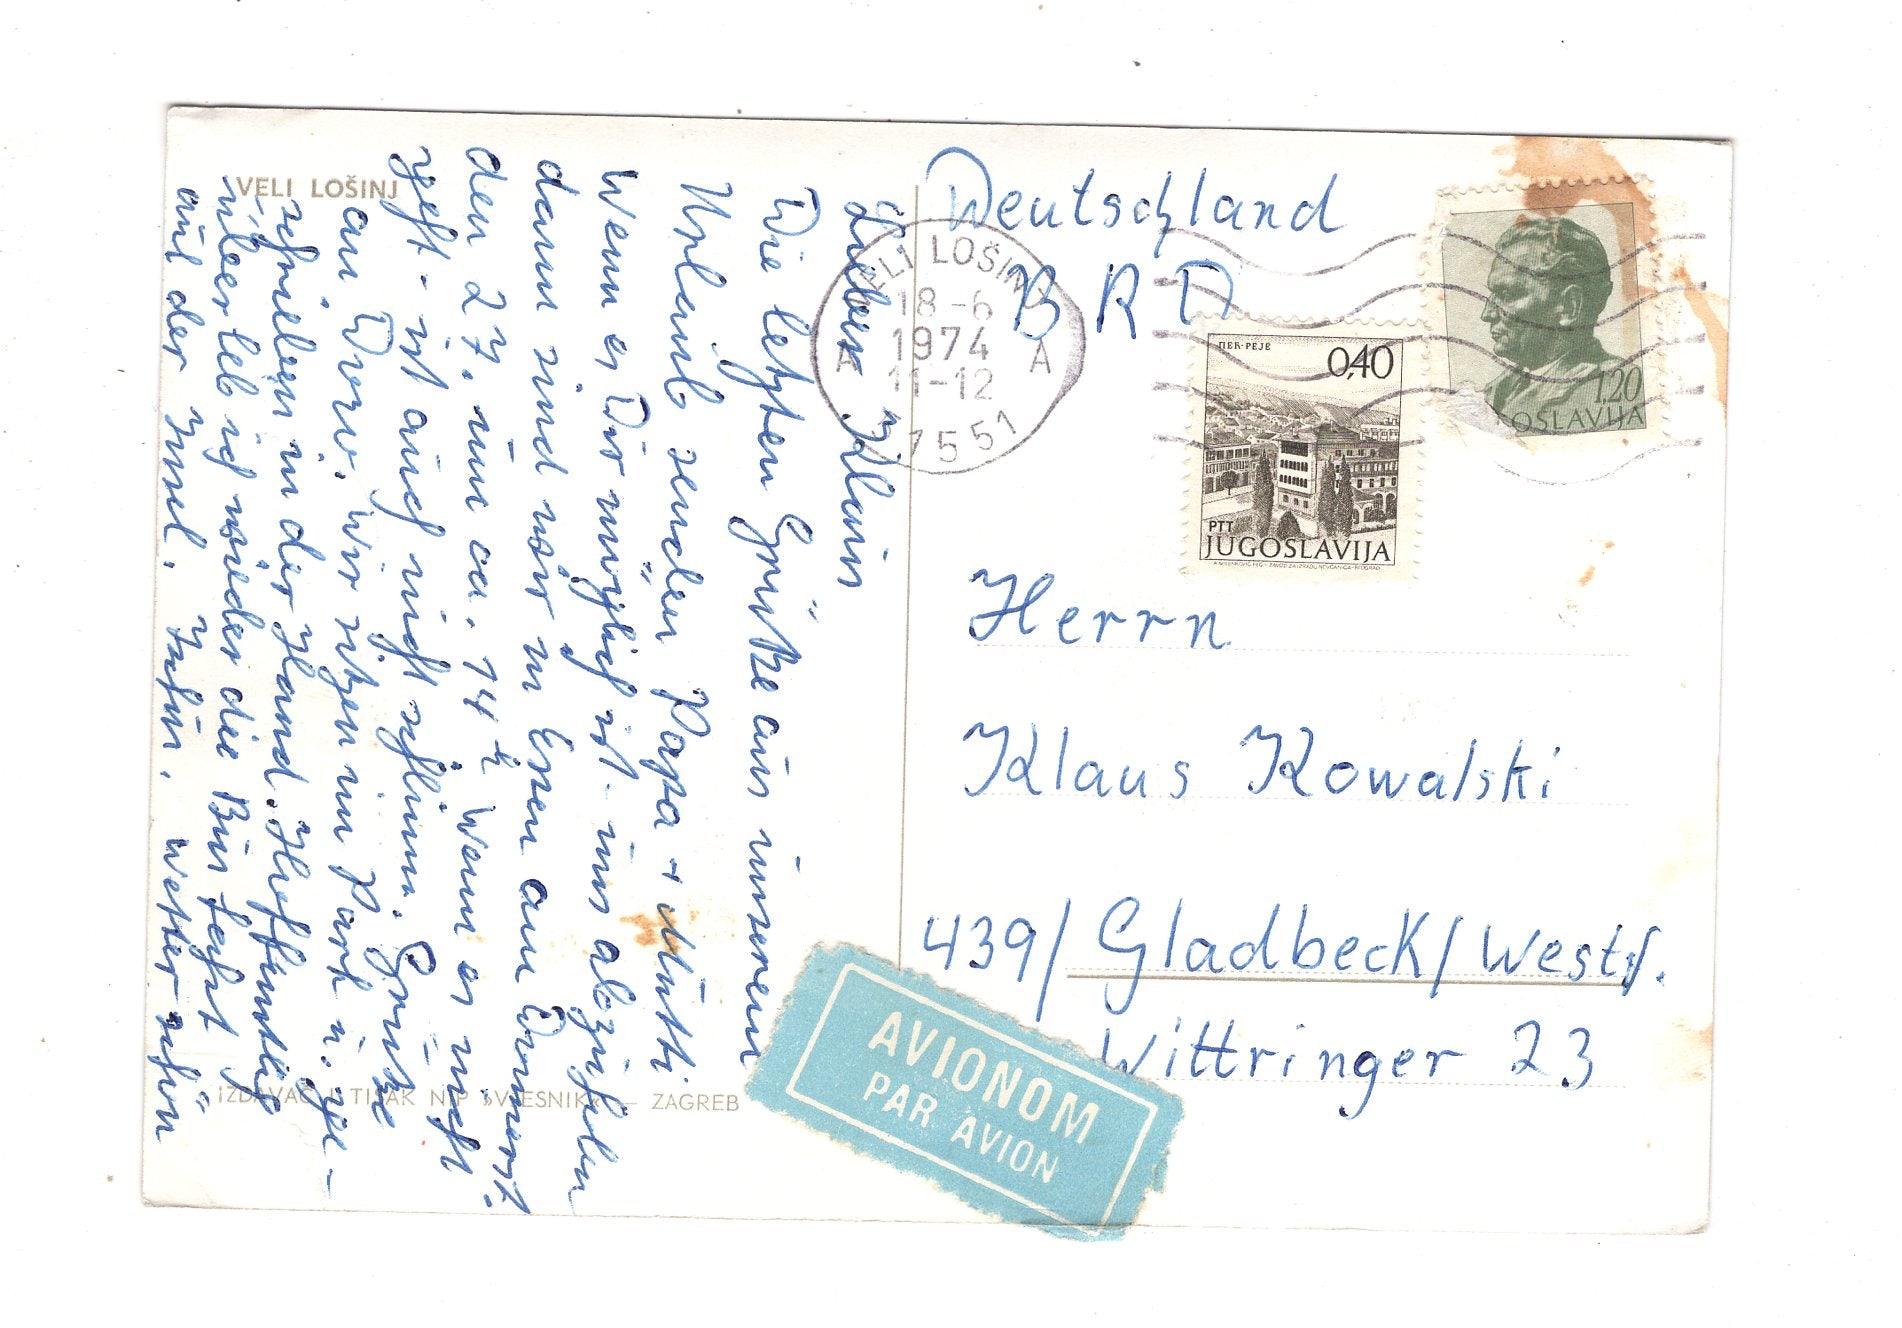 VELI LOŠINJ
Lieber Klaus
Die letzten Grüße aus unserem
Urlaub senden Papa + Mutti.
Wenn es Dir möglich ist uns abzuholen
dann sind wir in Essen am Donnerst.
den 27. um ca. 14 h Wenn es nicht
geht - ist auch nicht schlimm. Grüße
an Doro. Wir sitzen im Park u. ge-
schrieben in der Hand. Hoffentlich
überleb ich wieder die Bus fahrt
auf der Insel. Wetter schön
IZDAVAČ I TISAK NIP »VJESNIK« — ZAGREB
Deutschland
BRD
VELI LOŠINJ
18-6
1974
11-12
A A
51551
ПЕЋ-PEJË
0,40
PTT
JUGOSLAVIJA
1,20
JUGOSLAVIJA
Herrn
Klaus Kowalski
439/ Gladbeck/Westf.
Wittringer 23
AVIONOM
PAR AVION